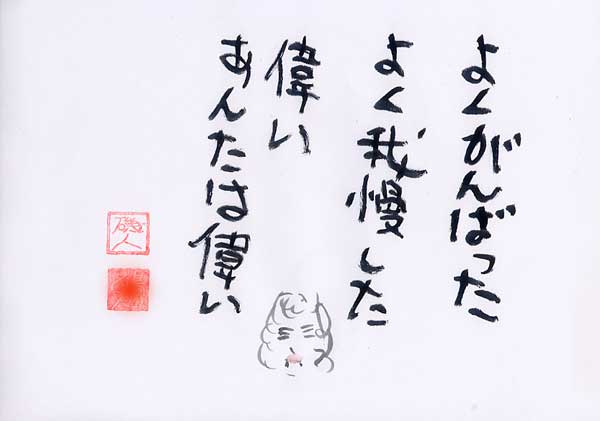 よくがんばった
よく我慢した
偉い
あんたは偉い